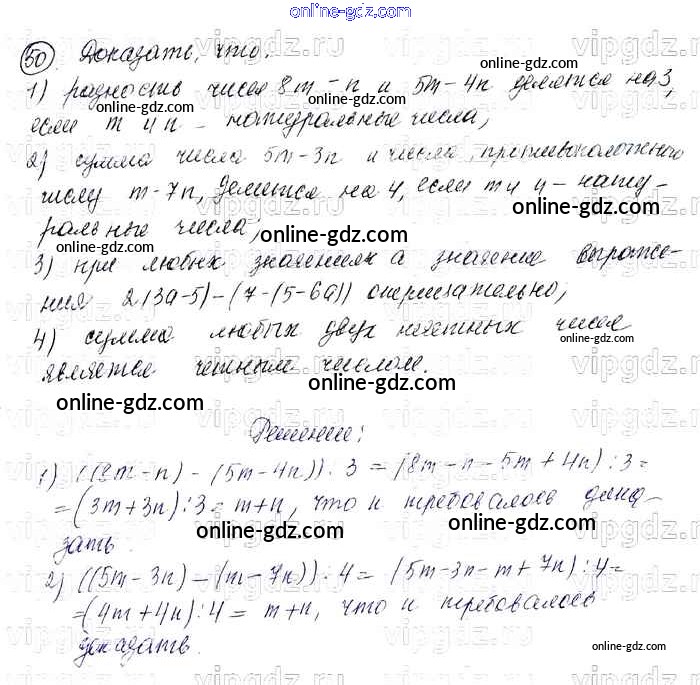 online-gdz.com
50. Доказать, что.
1) разность чисел 8m - n и 5m - 4n делятся на 3,
если m и n - натуральные числа;
online-gdz.com
2) сумма числа 5m-3n и числа, противоположного
числу m-7n, делится на 4, если m и n - нату-
online-gdz.com
ральные числа;
online-gdz.com
3) при любых значениях a значение выраже-
ния 2(3a-5)-(7-(5-6a)) отрицательно;
online-gdz.com
4) сумма любых двух нечетных чисел
является четным числом.
online-gdz.com
online-gdz.com
Решение:
online-gdz.com
1) ((8m-n) - (5m-4n)) : 3 = (8m-n-5m+4n) : 3 =
= (3m+3n) : 3 = m+n, что и требовалось дока-
online-gdz.com
online-gdz.com
зать.
online-gdz.com
2) ((5m-3n) - (m-7n)) : 4 = (5m-3n-m+7n) : 4 =
online-gdz.com
= (4m+4n) : 4 = m+n, что и требовалось
online-gdz.com
доказать.
online-gdz.com
online-gdz.com